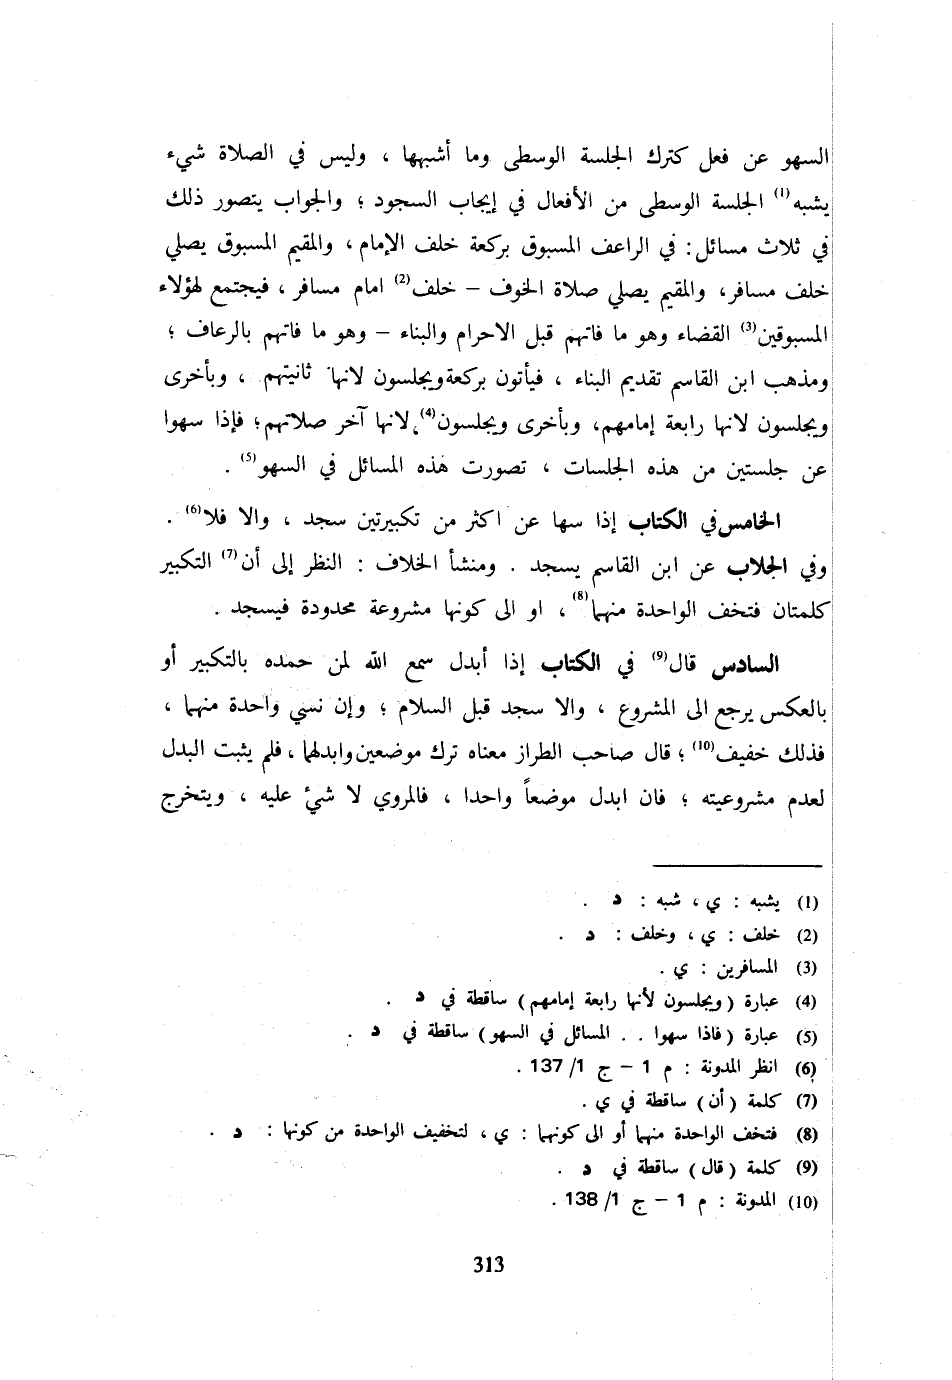 السهو عن فعل كترك الجلسة الوسطى وما أشبهها ، وليس في الصلاة شيء
يشبه(1) الجلسة الوسطى من الأفعال في إيجاب السجود ؛ والجواب يتصور ذلك
في ثلاث مسائل : في الراعف المسبوق بركعة خلف الإمام ، والمقيم المسبوق يصلي
خلف مسافر، والمقيم يصلي صلاة الخوف – خلف(2) امام مسافر ، فيجتمع لهؤلاء
المسبوقين(3) القضاء وهو ما فاتهم قبل الاحرام والبناء – وهو ما فاتهم بالرعاف ؛
ومذهب ابن القاسم تقديم البناء ، فيأتون بركعة ويجلسون لانها ثانيتهم ، وبأخرى
ويجلسون لانها رابعة إمامهم، وبأخرى ويجلسون(4)، لانها آخر صلاتهم؛ فإذا سهوا
عن جلستين من هذه الجلسات ، تصورت هذه المسائل في السهو(5) .
الخامس في الكتاب إذا سها عن اكثر من تكبيرتين سجد ، والا فلا(6) .
وفي الجلاب عن ابن القاسم يسجد . ومنشأ الخلاف : النظر إلى أن(7) التكبير
كلمتان فتخف الواحدة منهما(8) ، او الى كونها مشروعة محدودة فيسجد .
السادس قال(9) في الكتاب إذا أبدل سمع الله لمن حمده بالتكبير أو
بالعكس يرجع الى المشروع ، والا سجد قبل السلام ؛ وإن نسي واحدة منهما ،
فذلك خفيف(10) ؛ قال صاحب الطراز معناه ترك موضعين وابدلهما ، فلم يثبت البدل
لعدم مشروعيته ؛ فان ابدل موضعاً واحدا ، فالمروي لا شئ عليه ، ويتخرج
(1) يشبه : ي ، شبه : د .
(2) خلف : ي ، وخلف : د .
(3) المسافرين : ي .
(4) عبارة ( ويجلسون لأنها رابعة إمامهم ) ساقطة في د .
(5) عبارة ( فاذا سهوا . . المسائل في السهو ) ساقطة في د .
(6) انظر المدونة : م 1 – ج 1/ 137 .
(7) كلمة ( أن ) ساقطة في ي .
(8) فتخف الواحدة منهما أو الى كونهما : ي ، لتخفيف الواحدة من كونها : د .
(9) كلمة ( قال ) ساقطة في د .
(10) المدونة : م 1 – ج 1/ 138 .
313